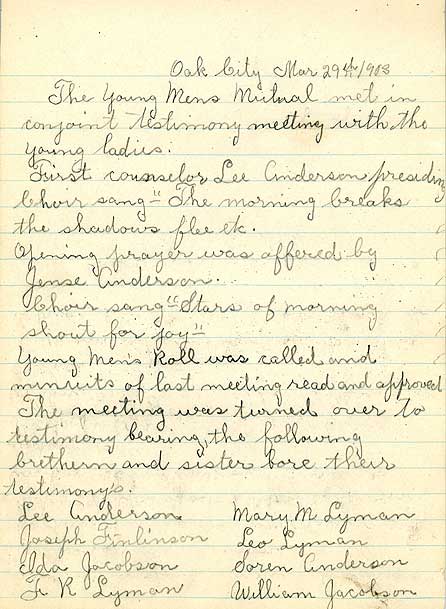 Oak City Mar 29th/1908
The Young Mens Mutual met in
conjoint testimony meeting with the
young ladies.
First counselor Lee Anderson presiding
Choir sang "The morning breaks
the shadows flee etc.
Opening prayer was offered by
Jense Anderson.
Choir sang "Stars of morning
shout for joy"
Young Men's Roll was called and
minuits of last meeting read and approved
The meeting was turned over to
testimony bearing, the following
brethern and sister bore their
testimonys.
Lee Anderson Mary M Lyman
Joseph Finlinson Leo Lyman
Ida Jacobson Soren Anderson
F R Lyman William Jacobson